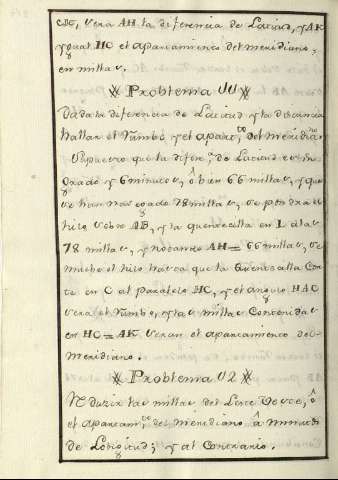 CK, sera AH la diferencia de Latitud, y AK
ygual HC el apartamiento del meridiano,
en millas.
Problema
Dada la diferencia de Latitud y la distancia
hallar el Rumbo y el apart.to del meridiano
Supuesto que la difer.ª de Latitud es un
grado y 6 minutos, ô bien 66 millas, y que
se han navegado 78 millas, se pondra el
hilo sobre AB, y la quentecilla en L â las
78 millas, y notando AH = 66 millas, se
mueba el hilo hasta que la Quentesilla Cor
te en C al paralelo HC, y el angulo HAC
sera el Rumbo, y las millas Contenidas
en HC = AK seran el apartamiento del
Meridiano.
Problema
Reduzir las millas del Leste Oeste, ô
el apartam.to del Meridiano â minutos
de Lo[n]gitud; y al Contrario.